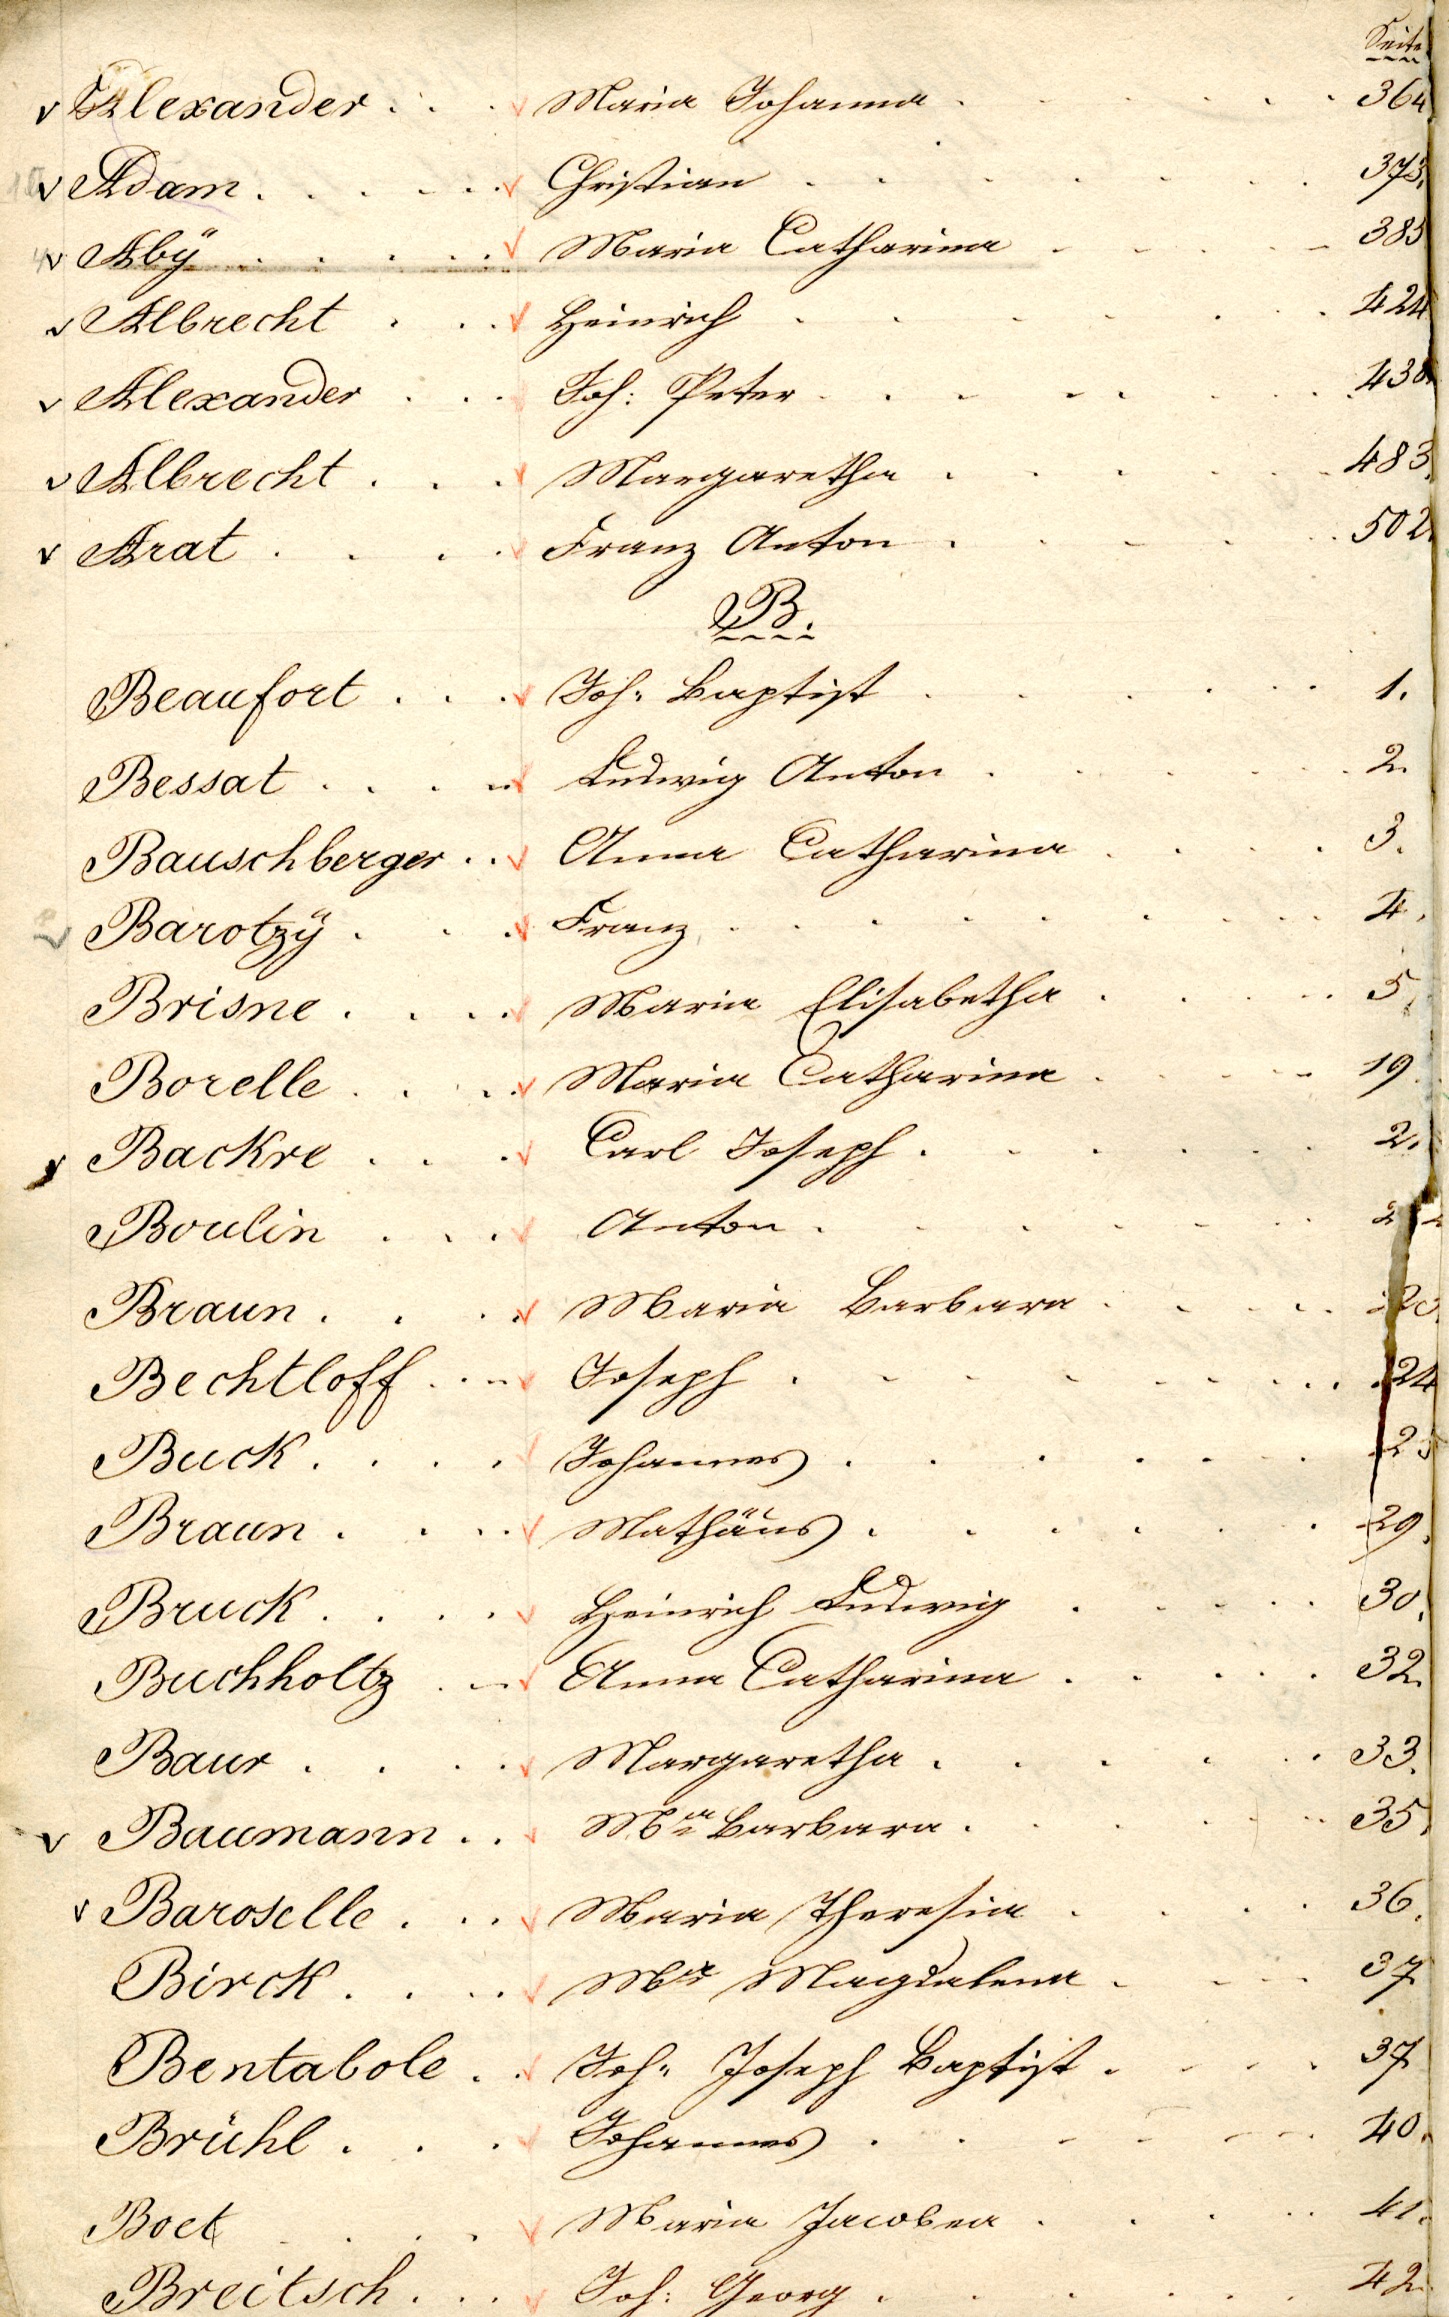 Seite
Alexander . . . Maria Johanna . . . . . . 364
Adam . . . . . . Christian . . . . . . . 373.
Abÿ . . . . . . Maria Catharina . . . . . 385
Albrecht . . . Heinrich . . . . . . . . 424
Alexander . . . Joh: Peter . . . . . . . 438
Albrecht . . . Margaretha . . . . . . 483.
Arat . . . . Franz Anton . . . . . . 502.
B.
Beaufort . . . Joh. Baptist . . . . . . 1.
Bessat . . . . Ludwig Anton . . . . . . 2.
Bauschberger . . Anna Catharina . . . . 3.
Barotzÿ . . . Franz . . . . . . . . 4.
Brisne . . . . Maria Elisabetha . . . . . 5.
Borelle . . . . Maria Catharina . . . . . 19.
Backre . . . Carl Joseph . . . . . . 2.
Boulin . . . Anton . . . . . . .
Braun . . . . Maria Barbara . . . . .
Bechtloff . . . Joseph . . . . . . . . . 24
Buck . . . . Johannes . . . . . . . 25
Braun . . . . Mathäus . . . . . . . 29.
Bruck . . . . Heinrich Ludwig . . . . . 30.
Buchholtz . . . Anna Catharina . . . . . 32.
Baur . . . . Margaretha . . . . . . 33.
Baumann . . Mia Barbara . . . . . . 35.
Baroselle . . . Maria Theresia . . . . 36.
Birck . . . . Mia Magdalena . . . . 37
Bentabole . . Joh. Joseph Baptist . . . . 37
Brühl . . . Johannes . . . . . . . 40.
Boet . . . . Maria Jacobea . . . . . 41.
Breitsch . . . Joh: Georg . . . . . . 42.